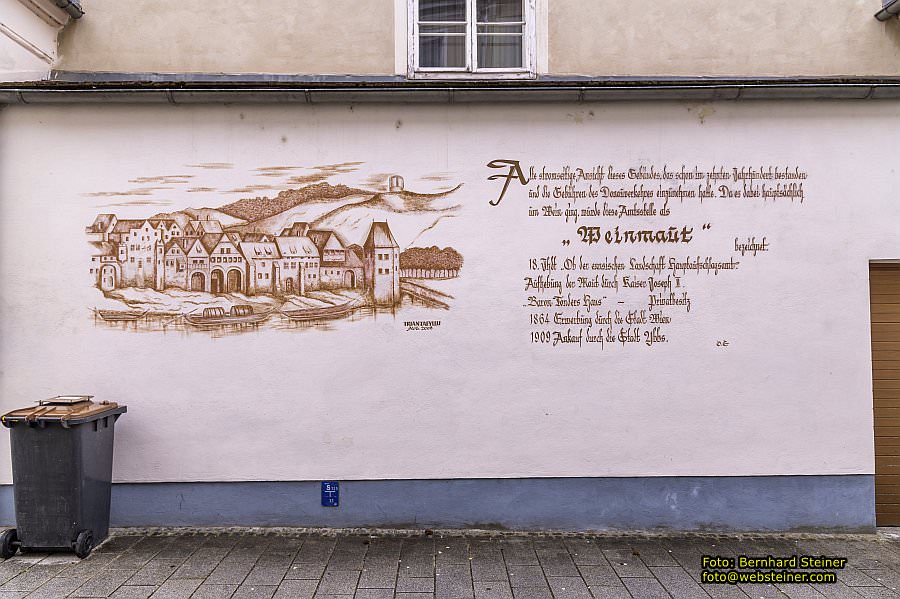 Alte stromseitige Ansicht dieses Gebäudes, das schon im zehnten Jahrhundert bestanden
und die Gebühren des Donauverkehres einzunehmen hatte. Da es dabei hauptsächlich
um Wein ging, wurde diese Amtsstelle als
„Weinmaut“
bezeichnet.
18. Jhdt. „Ob der ennsischen Landschaft Hauptaufschlagsamt“
Aufhebung der Maut durch Kaiser Joseph II.
„Baron Tonders Haus“ – Privatbesitz
1864 Erwerbung durch die Stadt Wien
1909 Ankauf durch die Stadt Ybbs.
TRIANTAFYLLU
S
Foto: Bernhard Steiner
foto@websteiner.com